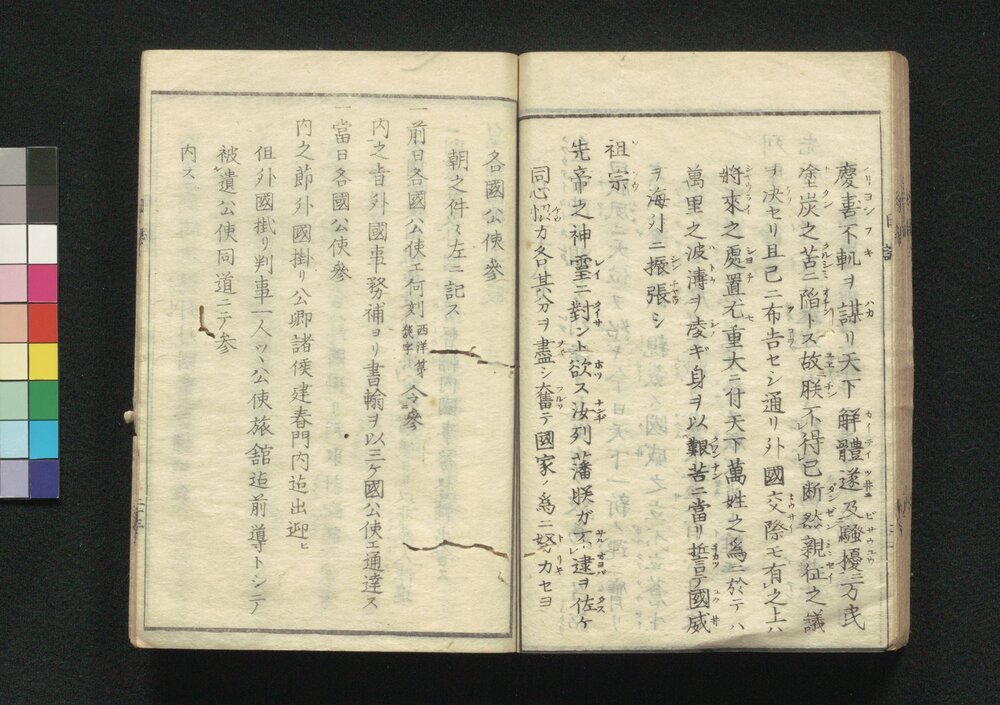 慶喜不軌ヲ謀リ天下解體遂及騒擾万民
塗炭之苦ニ陥トス故朕不得已断然親征之議
ヲ决セリ且已ニ布告セシ通リ外國交際モ有之上ハ
將來之處置尤重大ニ付天下萬姓之為ニ於テハ
萬里之波濤ヲ凌ギ身ヲ以艱苦ニ當リ誓テ國威
ヲ海外ニ振張シ
祖宗
先帝之神靈ニ對ント欲ス汝列藩朕ガ不逮ヲ佐ケ
同心協力各其分ヲ盡シ奮テ國家ノ為ニ努力セヨ
各國公使參
朝之件々左ニ記ス
一前日各國公使エ何刻西洋算字令參
内之旨外國事務補ヨリ書翰ヲ以三ケ國公使エ通達ス
一當日各國公使參
内之節外國掛リ公卿諸侯建春門内迠出迎ヒ
但外國掛リ判事一人ツヽ公使旅舘迠前導トシテ
被遣公使同道ニテ參
内ス